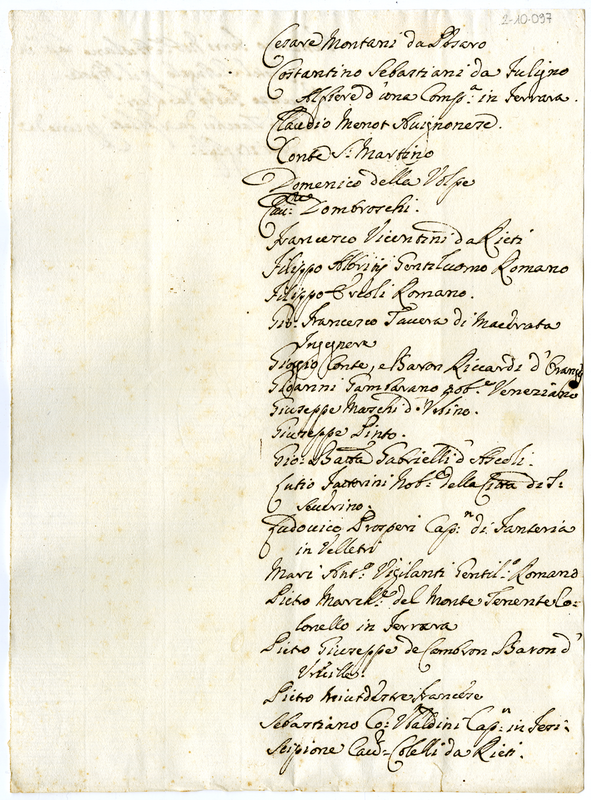 2-10-097
Cesare Montani da Pesaro
Costantino Sebastiani da Fuligno
Alfiere d'una Comp.a in Ferrara.
Claudio Menot Auignonese.
Conte S. Martino
Domenico della Volpe
Cau: Dombroschi.
Francesco Vicentini da Rieti
Filippo Alberitij Gentiluomo Romano
Filippo Ercoli Romano.
Gio: Francesco Tauera di Macerata
Ingegnere
Giorgio Conte, e Baron Riccardi d'
Gambarano Nob.e Veneziano
Giuseppe Maschi d'Vrbino.
Giuseppe Pinto.
Gio: Batta Gabrielli d'Ascoli.
Lutio Nob.e della Città di S.
Seuerino.
Ludouico Prosperi Cap.n di Fanteria
in Velletri
Mari Ant.o Vigilanti Gentil.o Romano
Pietro March.e del Monte Tenente Co-
lonello in Ferrara
Pietro Giuseppe de Cambron Baron d'
Pietro francese
Sebastiano Co: Vbaldini Cap.n in Iesi.
Scipione Cau. Colelli da Rieti.